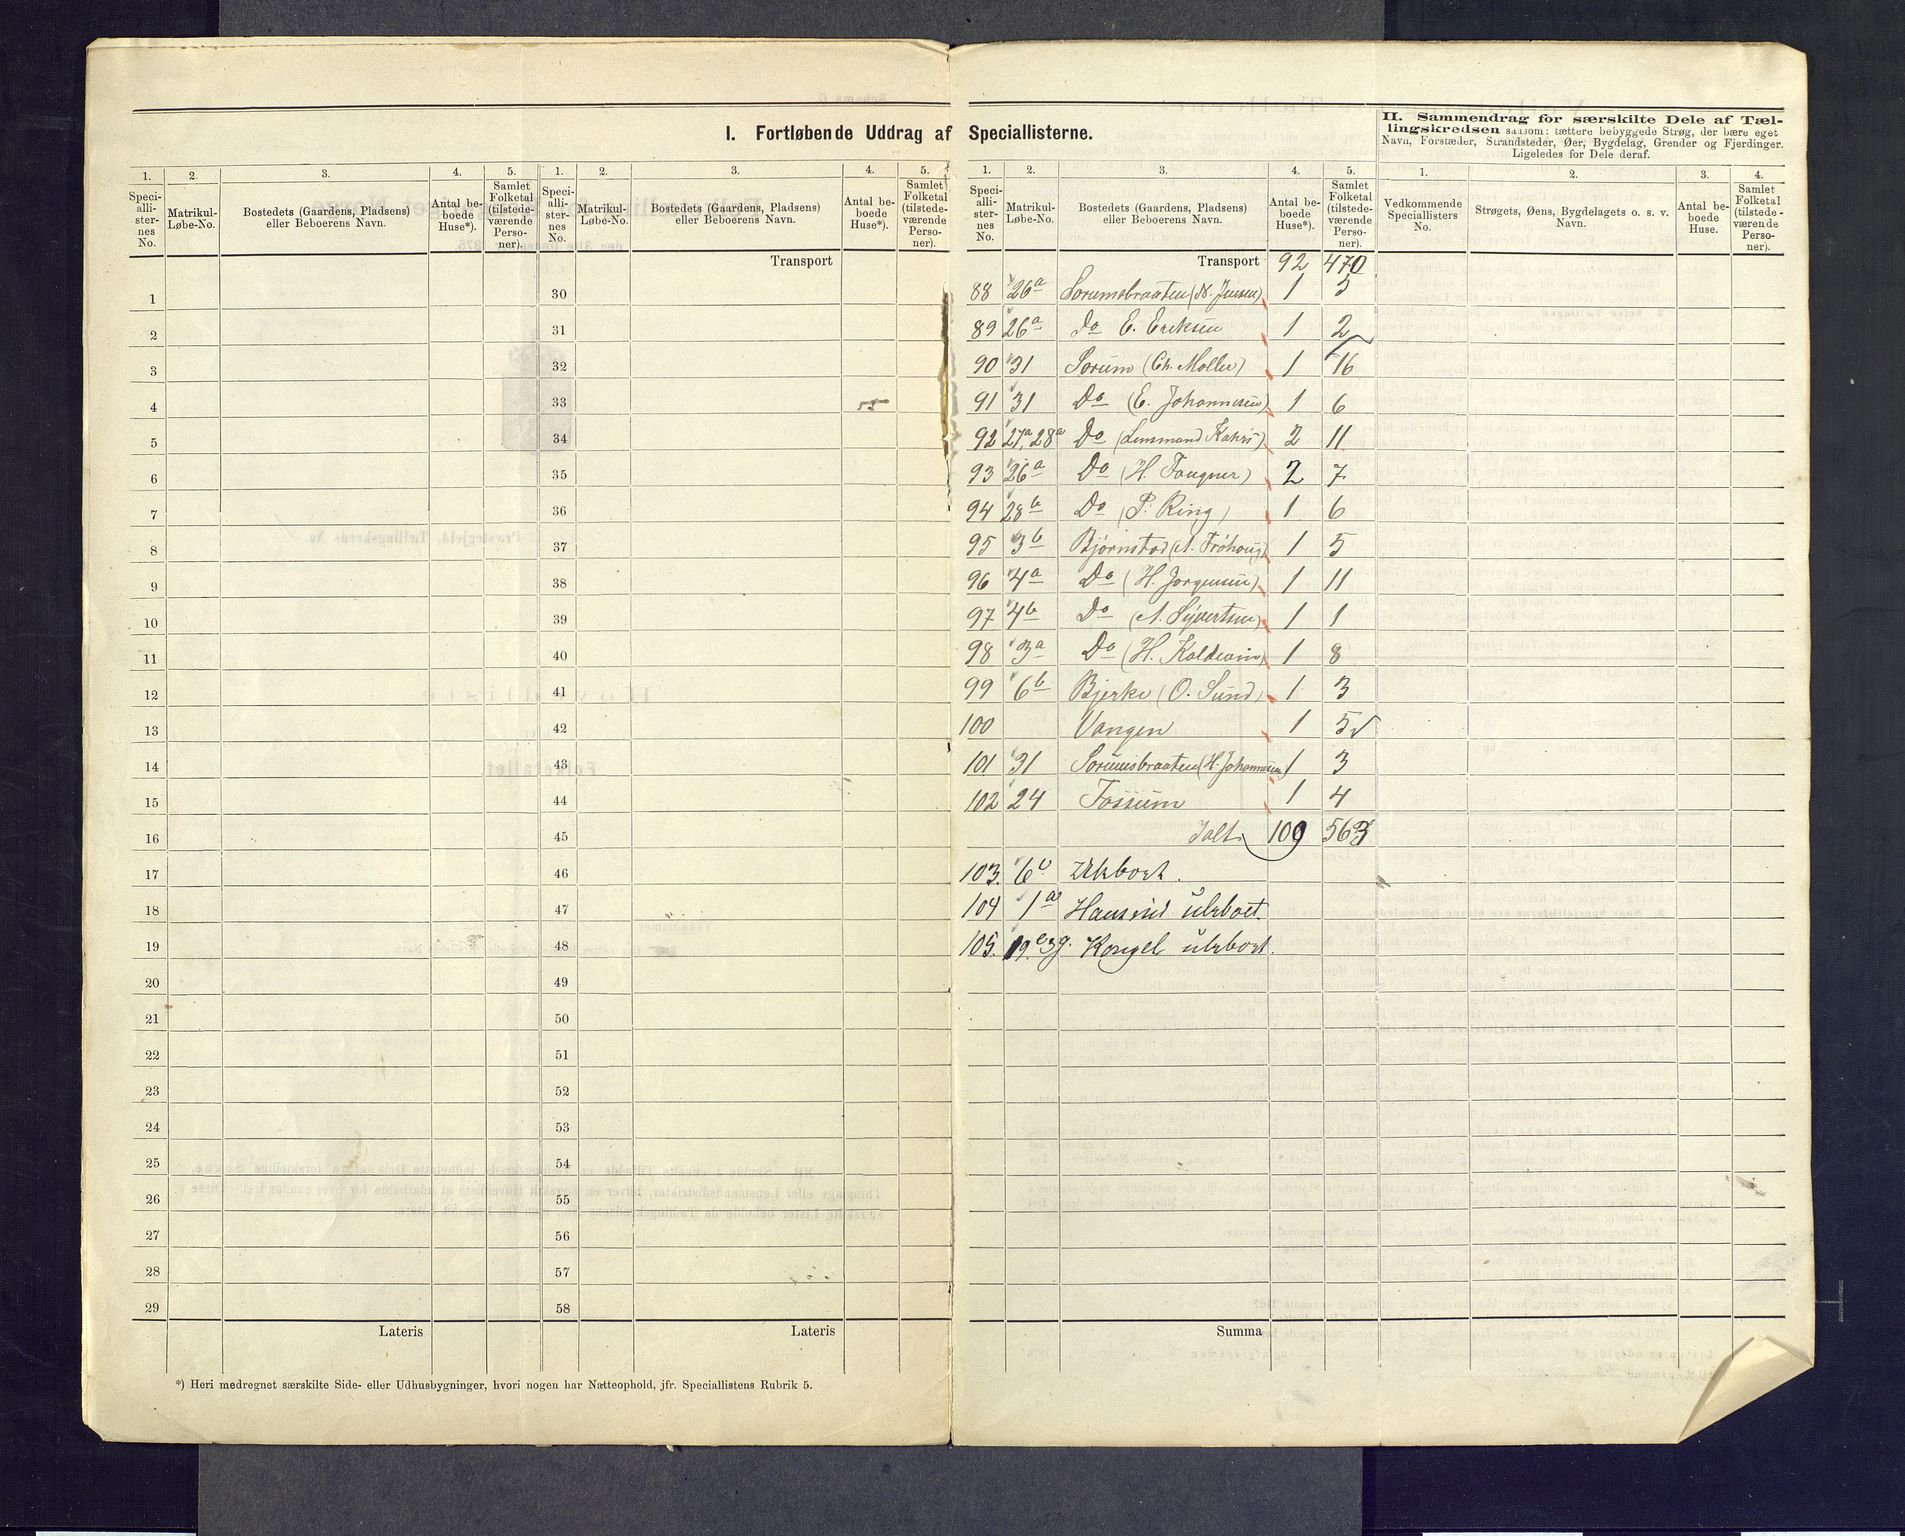 I. Fortløbende Uddrag af Speciallisterne.
II. Sammendrag for særskilte Dele af Tæl-
lingskredsen saasom: tættere bebyggede Strøg, der bære eget
Navn, Forstæder, Strandsteder, Øer, Bygdelag, Grender og Fjerdinger.
Ligeledes for Dele deraf.
1. 2. 3. 4. 5. 1. 2. 3. 4. 5. 1. 2. 3. 4. 5. 1. 2. 3. 4.
Speci-
alli-
ster-
nes
No.
Matrikul-
Løbe-No.
Bostedets (Gaardens, Pladsens)
eller Beboerens Navn.
Antal be-
boede
Huse*).
Samlet
Folketal
(tilstede-
værende
Perso-
ner).
Speci-
alli-
ster-
nes
No.
Matrikul-
Løbe-No.
Bostedets (Gaardens, Pladsens)
eller Beboerens Navn.
Antal be-
boede
Huse*).
Samlet
Folketal
(tilstede-
værende
Perso-
ner).
Speci-
alli-
ster-
nes
No.
Matrikul-
Løbe-No.
Bostedets (Gaardens, Pladsens)
eller Beboerens Navn.
Antal be-
boede
Huse*).
Samlet
Folketal
(tilstede-
værende
Perso-
ner).
Vedkommende
Speciallisters
No.
Strøgets, Øens, Bygdelagets o. s. v.
Navn.
Antal be-
boede
Huse.
Samlet
Folketal
(tilstede-
værende
Perso-
ner).
1
2
3
4
5
6
7
8
9
10
11
12
13
14
15
16
17
18
19
20
21
22
23
24
25
26
27
28
29
Lateris
Transport
30
31
32
33
34
35
36
37
38
39
40
41
42
43
44
45
46
47
48
49
50
51
52
53
54
55
56
57
58
Lateris
Transport 92 470
88 26a Sorumsbraaten (N. Jensen) 1 5
89 26a Do E. Eriksen 1 2
90 31 Sorum (Ch. Moller) 1 16
91 31 Do (E. Johannesen) 1 6
92 27a, 28a Do (Lensmand) 2 11
93 26a Do (H. Fougner) 2 7
94 28b Do (P. Ring) 1 6
95 3b Bjørnstad (A. Frøhoug) 1 5
96 4a Do (H. Jorgensen) 1 11
97 4b Do (A. Syvertsen) 1 1
98 3a Do (H. Koldevin) 1 8
99 6b Bjerke (O. Sund) 1 3
100 Vangen 1 5
101 31 Sorumsbraaten (H. Johannesen) 1 3
102 24 Fossum 1 4
Ialt 109 563
103. 6 Ubeboet.
104 1a ubeboet.
105. 19. Kongel ubeboet.
Summa
*) Heri medregnet særskilte Side- eller Udhusbygninger, hvori nogen har Natteophold, jfr. Speciallistens Rubrik 5.